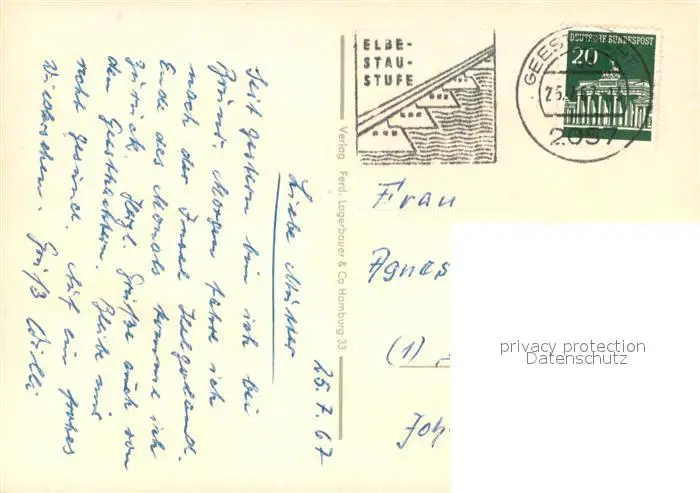 ELBE-
STAU-
STUFE
GEEST
25.7
2057
DEUTSCHE BUNDESPOST
20
Verlag Ferd. Lagerbauer & Co Hamburg 33
25.7.67
Liebe Mutter
Seit gestern bin ich bei
Morgen fahre ich
nach der Insel Helgoland.
Ende des Monats komme ich
zurück. Herzl. Grüße auch von
den Geesthachtern. Bleibe uns
recht gesund. Auf ein frohes
Wiedersehen. Gruß Willi
Frau
Agnes
(1)
Joh
privacy protection
Datenschutz